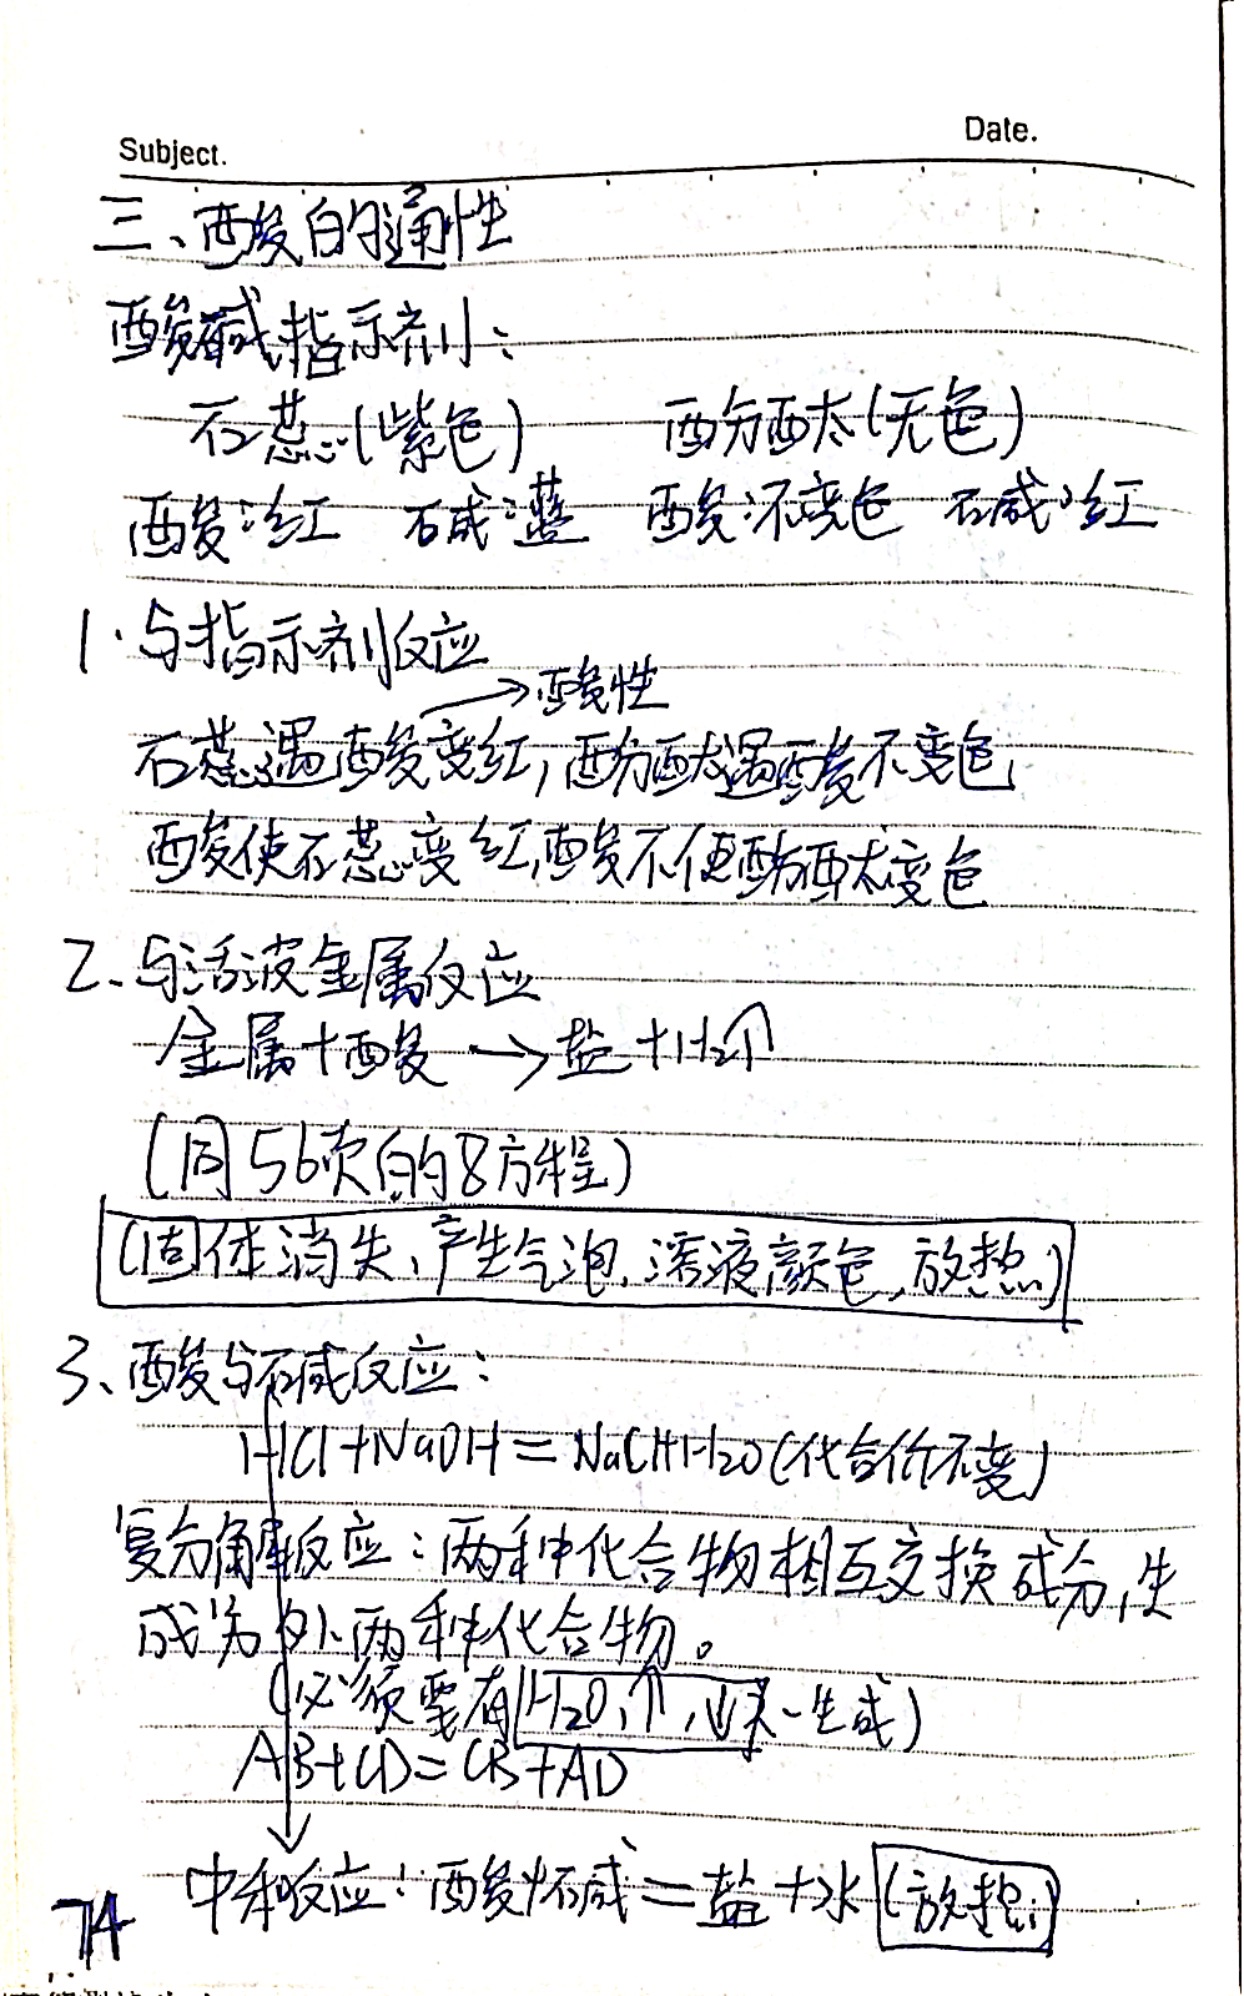 Subject.
Date.
三、酸的通性
酸碱指示剂:
石蕊(紫色) 酚酞(无色)
酸:红 碱:蓝 酸:不变色 碱:红
1.与指示剂反应
→酸性
石蕊遇酸变红,酚酞遇酸不变色
酸使石蕊变红,酸不使酚酞变色
2、与活波金属反应
金属+酸→盐+H₂↑
(同56页的8方程)
(固体消失、产生气泡、溶液颜色、放热)
3、酸与碱反应:
HCl+NaOH=NaCl+H₂O(化合价不变)
复分解反应:两种化合物相互交换成分,生
成另外两种化合物。
(必须要有H₂O,↑,↓之一生成)
AB+CD=CB+AD
中和反应:酸+碱=盐+水(放热)
74